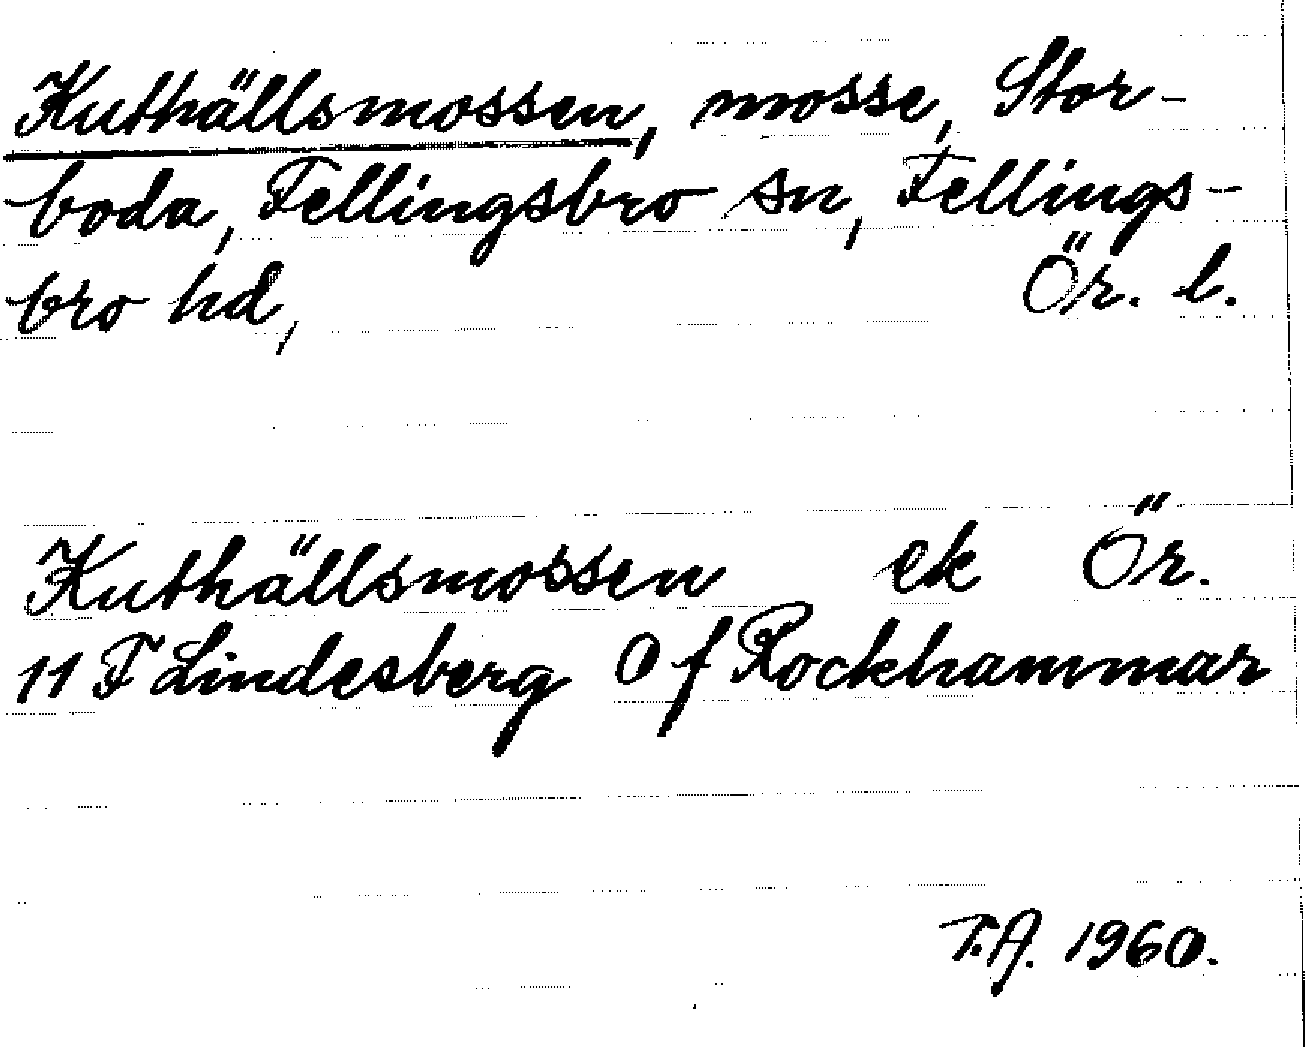 Kuthällsmossen, mosse, Stor-
boda, Fellingsbro sn, Fellings-
bro hd, Ör. l.
Kuthällsmossen ek Ör.
11 F Lindesberg 0 f Rockhammar
T.A. 1960.